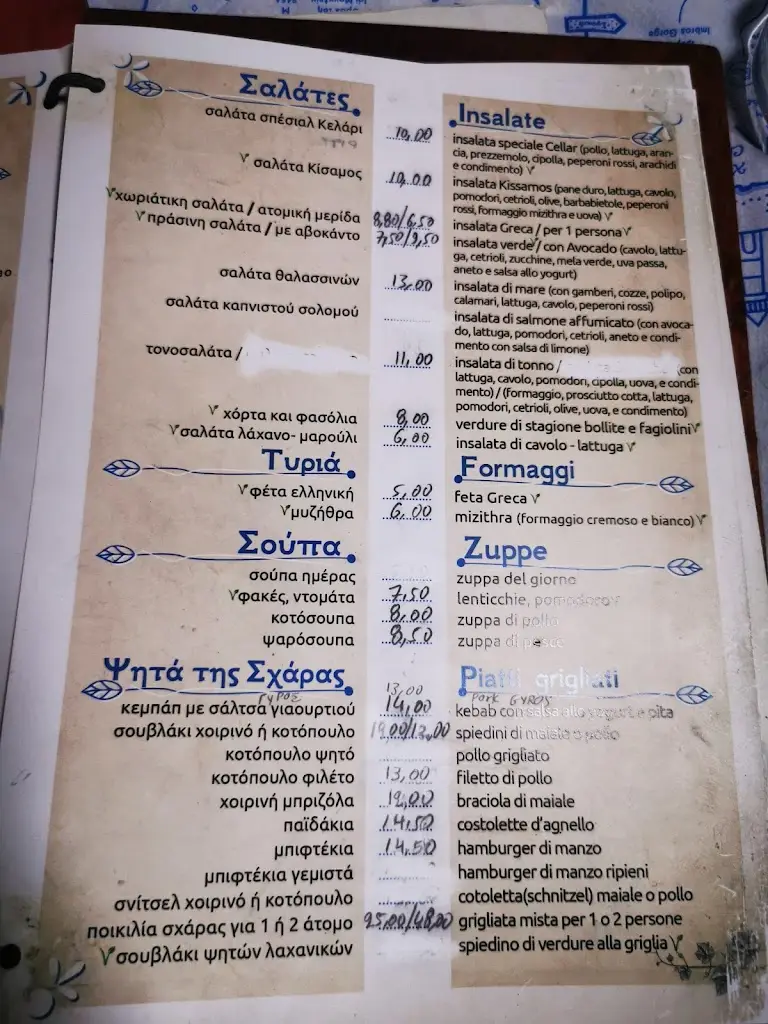 Σαλάτες
σαλάτα σπέσιαλ Κελάρι 10,00
V σαλάτα Κίσαμος 10.00
V χωριάτικη σαλάτα / ατομική μερίδα 8,80/6,50
V πράσινη σαλάτα / με αβοκάντο 7,50/9,50
σαλάτα θαλασσινών 13,00
σαλάτα καπνιστού σολομού
τονοσαλάτα / 11,00
V χόρτα και φασόλια 8,00
V σαλάτα λάχανο- μαρούλι 6,00
Τυριά
V φέτα ελληνική 5,00
V μυζήθρα 6.00
Σούπα
σούπα ημέρας
V φακές, ντομάτα 7,50
κοτόσουπα 8,00
ψαρόσουπα 8,50
Ψητά της Σχάρας
ΓΥΡΟΣ 13,00
κεμπάπ με σάλτσα γιαουρτιού 14,00
σουβλάκι χοιρινό ή κοτόπουλο
κοτόπουλο ψητό
κοτόπουλο φιλέτο 13,00
χοιρινή μπριζόλα
παϊδάκια 14,50
μπιφτέκια 14,50
μπιφτέκια γεμιστά
σνίτσελ χοιρινό ή κοτόπουλο
ποικιλία σχάρας για 1 ή 2 άτομο 25.00/48,00
V σουβλάκι ψητών λαχανικών
Insalate
insalata speciale Cellar (pollo, lattuga, aran-
cia, prezzemolo, cipolla, peperoni rossi, arachidi
e condimento) V
insalata Kissamos (pane duro, lattuga, cavolo,
pomodori, cetrioli, olive, barbabietole, peperoni
rossi, formaggio mizithra e uova) V
insalata Greca / per 1 persona V
insalata verde V/ con Avocado (cavolo, lattu-
ga, cetrioli, zucchine, mela verde, uva passa,
aneto e salsa allo yogurt)
insalata di mare (con gamberi, cozze, polipo,
calamari, lattuga, cavolo, peperoni rossi)
insalata di salmone affumicato (con avoca-
do, lattuga, pomodori, cetrioli, aneto e condi-
mento con salsa di limone)
insalata di tonno / (con
lattuga, cavolo, pomodori, cipolla, uova, e condi-
mento) / (formaggio, prosciutto cotta, lattuga,
pomodori, cetrioli, olive, uova, e condimento)
verdure di stagione bollite e fagiolini V
insalata di cavolo - lattuga V
Formaggi
feta Greca V
mizithra (formaggio cremoso e bianco) V
Zuppe
zuppa del giorno
lenticchie, pomodoro V
zuppa di pollo
zuppa di pesce
Piatti grigliati
Pork GYROS
kebab con salsa allo yogurt e pita
spiedini di maiale o pollo
pollo grigliato
filetto di pollo
braciola di maiale
costolette d'agnello
hamburger di manzo
hamburger di manzo ripieni
cotoletta(schnitzel) maiale o pollo
grigliata mista per 1 o 2 persone
spiedino di verdure alla griglia V